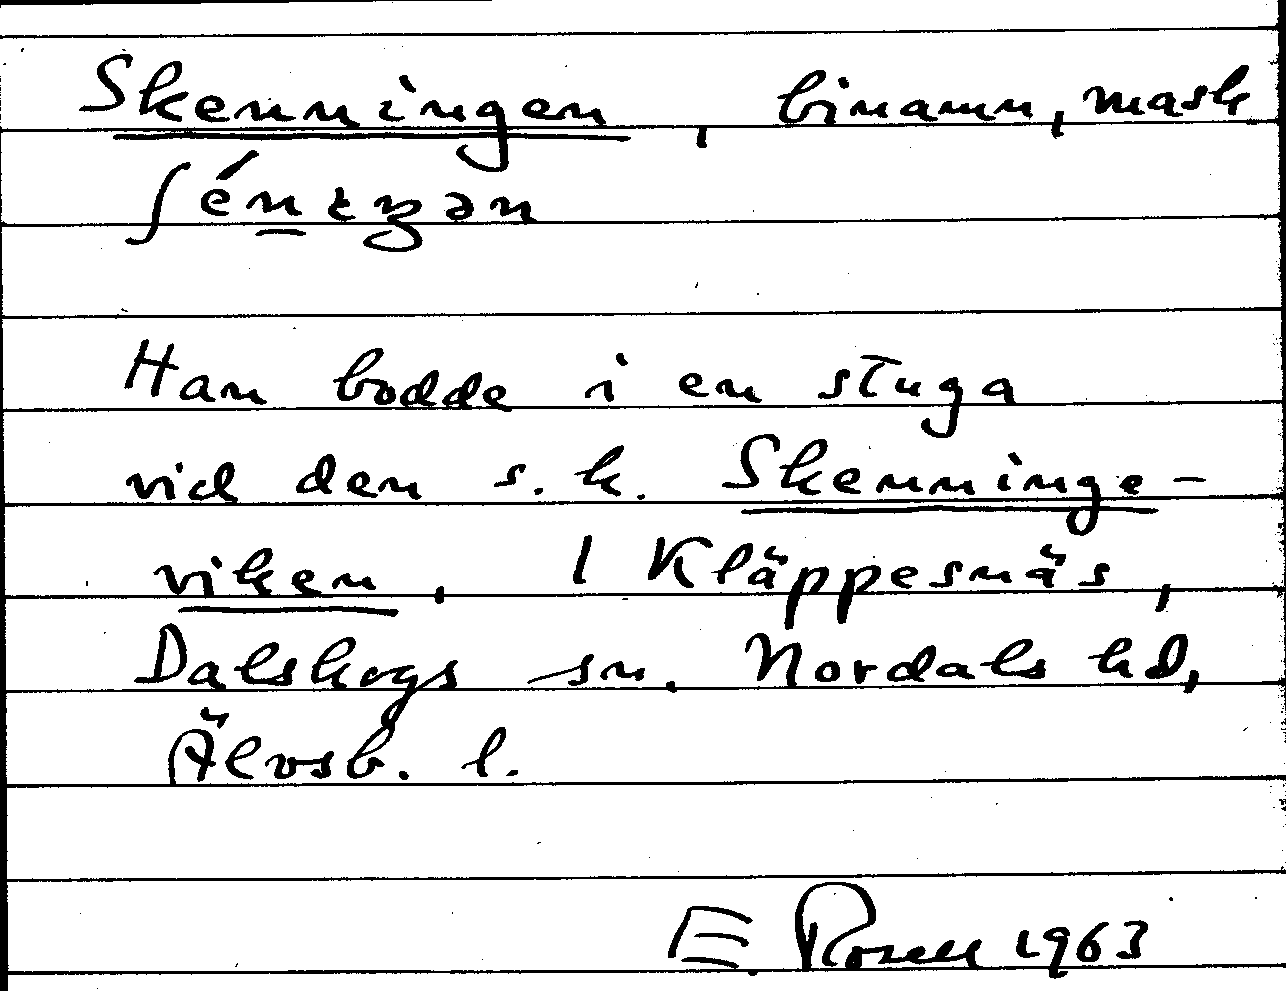 Skenningen, binamn, mask
ʃénɩŋən
Han bodde i en stuga
vid den s.k. Skenninge-
viken. I Kläppesnäs,
Dalskogs sn. Nordals hd,
Älvsb. l.
E. Rosell 1963